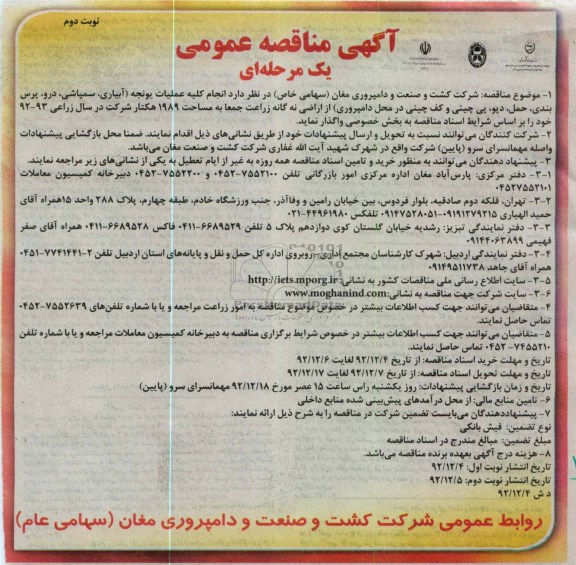 نوبت دوم
آگهی مناقصه عمومی
یک مرحله‌ای
۱- موضوع مناقصه: شرکت کشت و صنعت و دامپروری مغان (سهامی خاص) در نظر دارد انجام کلیه عملیات یونجه (آبیاری، سمپاشی، درو، پرس
بندی، حمل، دپو، پی چینی و کف چینی در محل دامپروری) از اراضی نه گانه زراعت جمعا به مساحت ۱۹۸۹ هکتار شرکت در سال زراعی ۹۳-۹۲
خود را بر اساس شرایط اسناد مناقصه به بخش خصوصی واگذار نماید.
۲- شرکت کنندگان می‌توانند نسبت به تحویل و ارسال پیشنهادات خود از طریق نشانی‌های ذیل اقدام نمایند. ضمنا محل بازگشایی پیشنهادات
واصله مهمانسرای سرو (پایین) شرکت واقع در شهرک شهید آیت الله غفاری شرکت کشت و صنعت مغان می‌باشد.
۳- پیشنهاد دهندگان می توانند به منظور خرید و تامین اسناد مناقصه همه روزه به غیر از ایام تعطیل به یکی از نشانی‌های زیر مراجعه نمایند.
۳-۱- دفتر مرکزی: پارس‌آباد مغان اداره مرکزی امور بازرگانی تلفن ۷۵۵۲۱۰۰-۰۴۵۲ و ۷۵۵۲۲۰۰-۰۴۵۲ دبیرخانه کمیسیون معاملات
۰۴۵۲۷۵۵۲۱۰۱
۳-۲- تهران، فلکه دوم صادقیه، بلوار فردوس، بین خیابان رامین و وفاآذر، جنب ورزشگاه خادم، طبقه چهارم، پلاک ۲۸۸ واحد ۱۵همراه آقای
حمید الهیاری ۰۹۱۹۱۲۷۹۲۱۵-۰۹۱۴۷۵۲۸۰۵۱ تلفکس ۴۴۹۶۱۹۸۰-۰۲۱
۳-۳- دفتر نمایندگی تبریز: رشدیه خیابان گلستان کوی دوازدهم پلاک ۵ تلفن ۶۶۸۹۵۲۹-۰۴۱۱ فاکس ۶۶۸۹۵۲۸-۰۴۱۱ همراه آقای صفر
فهیمی ۰۹۱۴۴۰۶۳۸۹۹
۳-۴- دفتر نمایندگی اردبیل: شهرک کارشناسان مجتمع اداری – روبروی اداره کل حمل و نقل و پایانه‌های استان اردبیل تلفن ۲-۷۷۴۱۴۴۱-۰۴۵۱
همراه آقای جاهد ۰۹۱۴۹۵۱۱۷۳۸
۳-۵- سایت اطلاع رسانی ملی مناقصات کشور به نشانی: http://iets.mporg.ir
۳-۶- سایت شرکت جهت مناقصه به نشانی: www.moghanind.com
۴- متقاضیان می‌توانند جهت کسب اطلاعات بیشتر در خصوص موضوع مناقصه به امور زراعت مراجعه و یا با شماره تلفن‌های ۷۵۵۲۶۳۹-۰۴۵۲
تماس حاصل نمایند.
۵- متقاضیان می‌توانند جهت کسب اطلاعات بیشتر در خصوص شرایط برگزاری مناقصه به دبیرخانه کمیسیون معاملات مراجعه و یا با شماره تلفن
۷۴۵۵۲۱۰-۰۴۵۲ تماس حاصل نمایند.
تاریخ و مهلت خرید اسناد مناقصه: از تاریخ ۹۲/۱۲/۴ لغایت ۹۲/۱۲/۶
تاریخ و مهلت تحویل اسناد مناقصه: از تاریخ ۹۲/۱۲/۷ لغایت ۹۲/۱۲/۱۷
تاریخ و زمان بازگشایی پیشنهادات: روز یکشنبه راس ساعت ۱۵ عصر مورخ ۹۲/۱۲/۱۸ مهمانسرای سرو (پایین)
۶- تامین منابع مالی: از محل درآمدهای پیش‌بینی شده منابع داخلی
۷- پیشنهاددهندگان می‌بایست تضمین شرکت در مناقصه را به شرح ذیل ارائه نمایند:
نوع تضمین: فیش بانکی
مبلغ تضمین: مبالغ مندرج در اسناد مناقصه
۸- هزینه درج آگهی بعهده برنده مناقصه می‌باشد.
تاریخ انتشار نوبت اول: ۹۲/۱۲/۴
تاریخ انتشار نوبت دوم: ۹۲/۱۲/۵
د ش ۹۲/۱۲/۴
روابط عمومی شرکت کشت و صنعت و دامپروری مغان (سهامی عام)